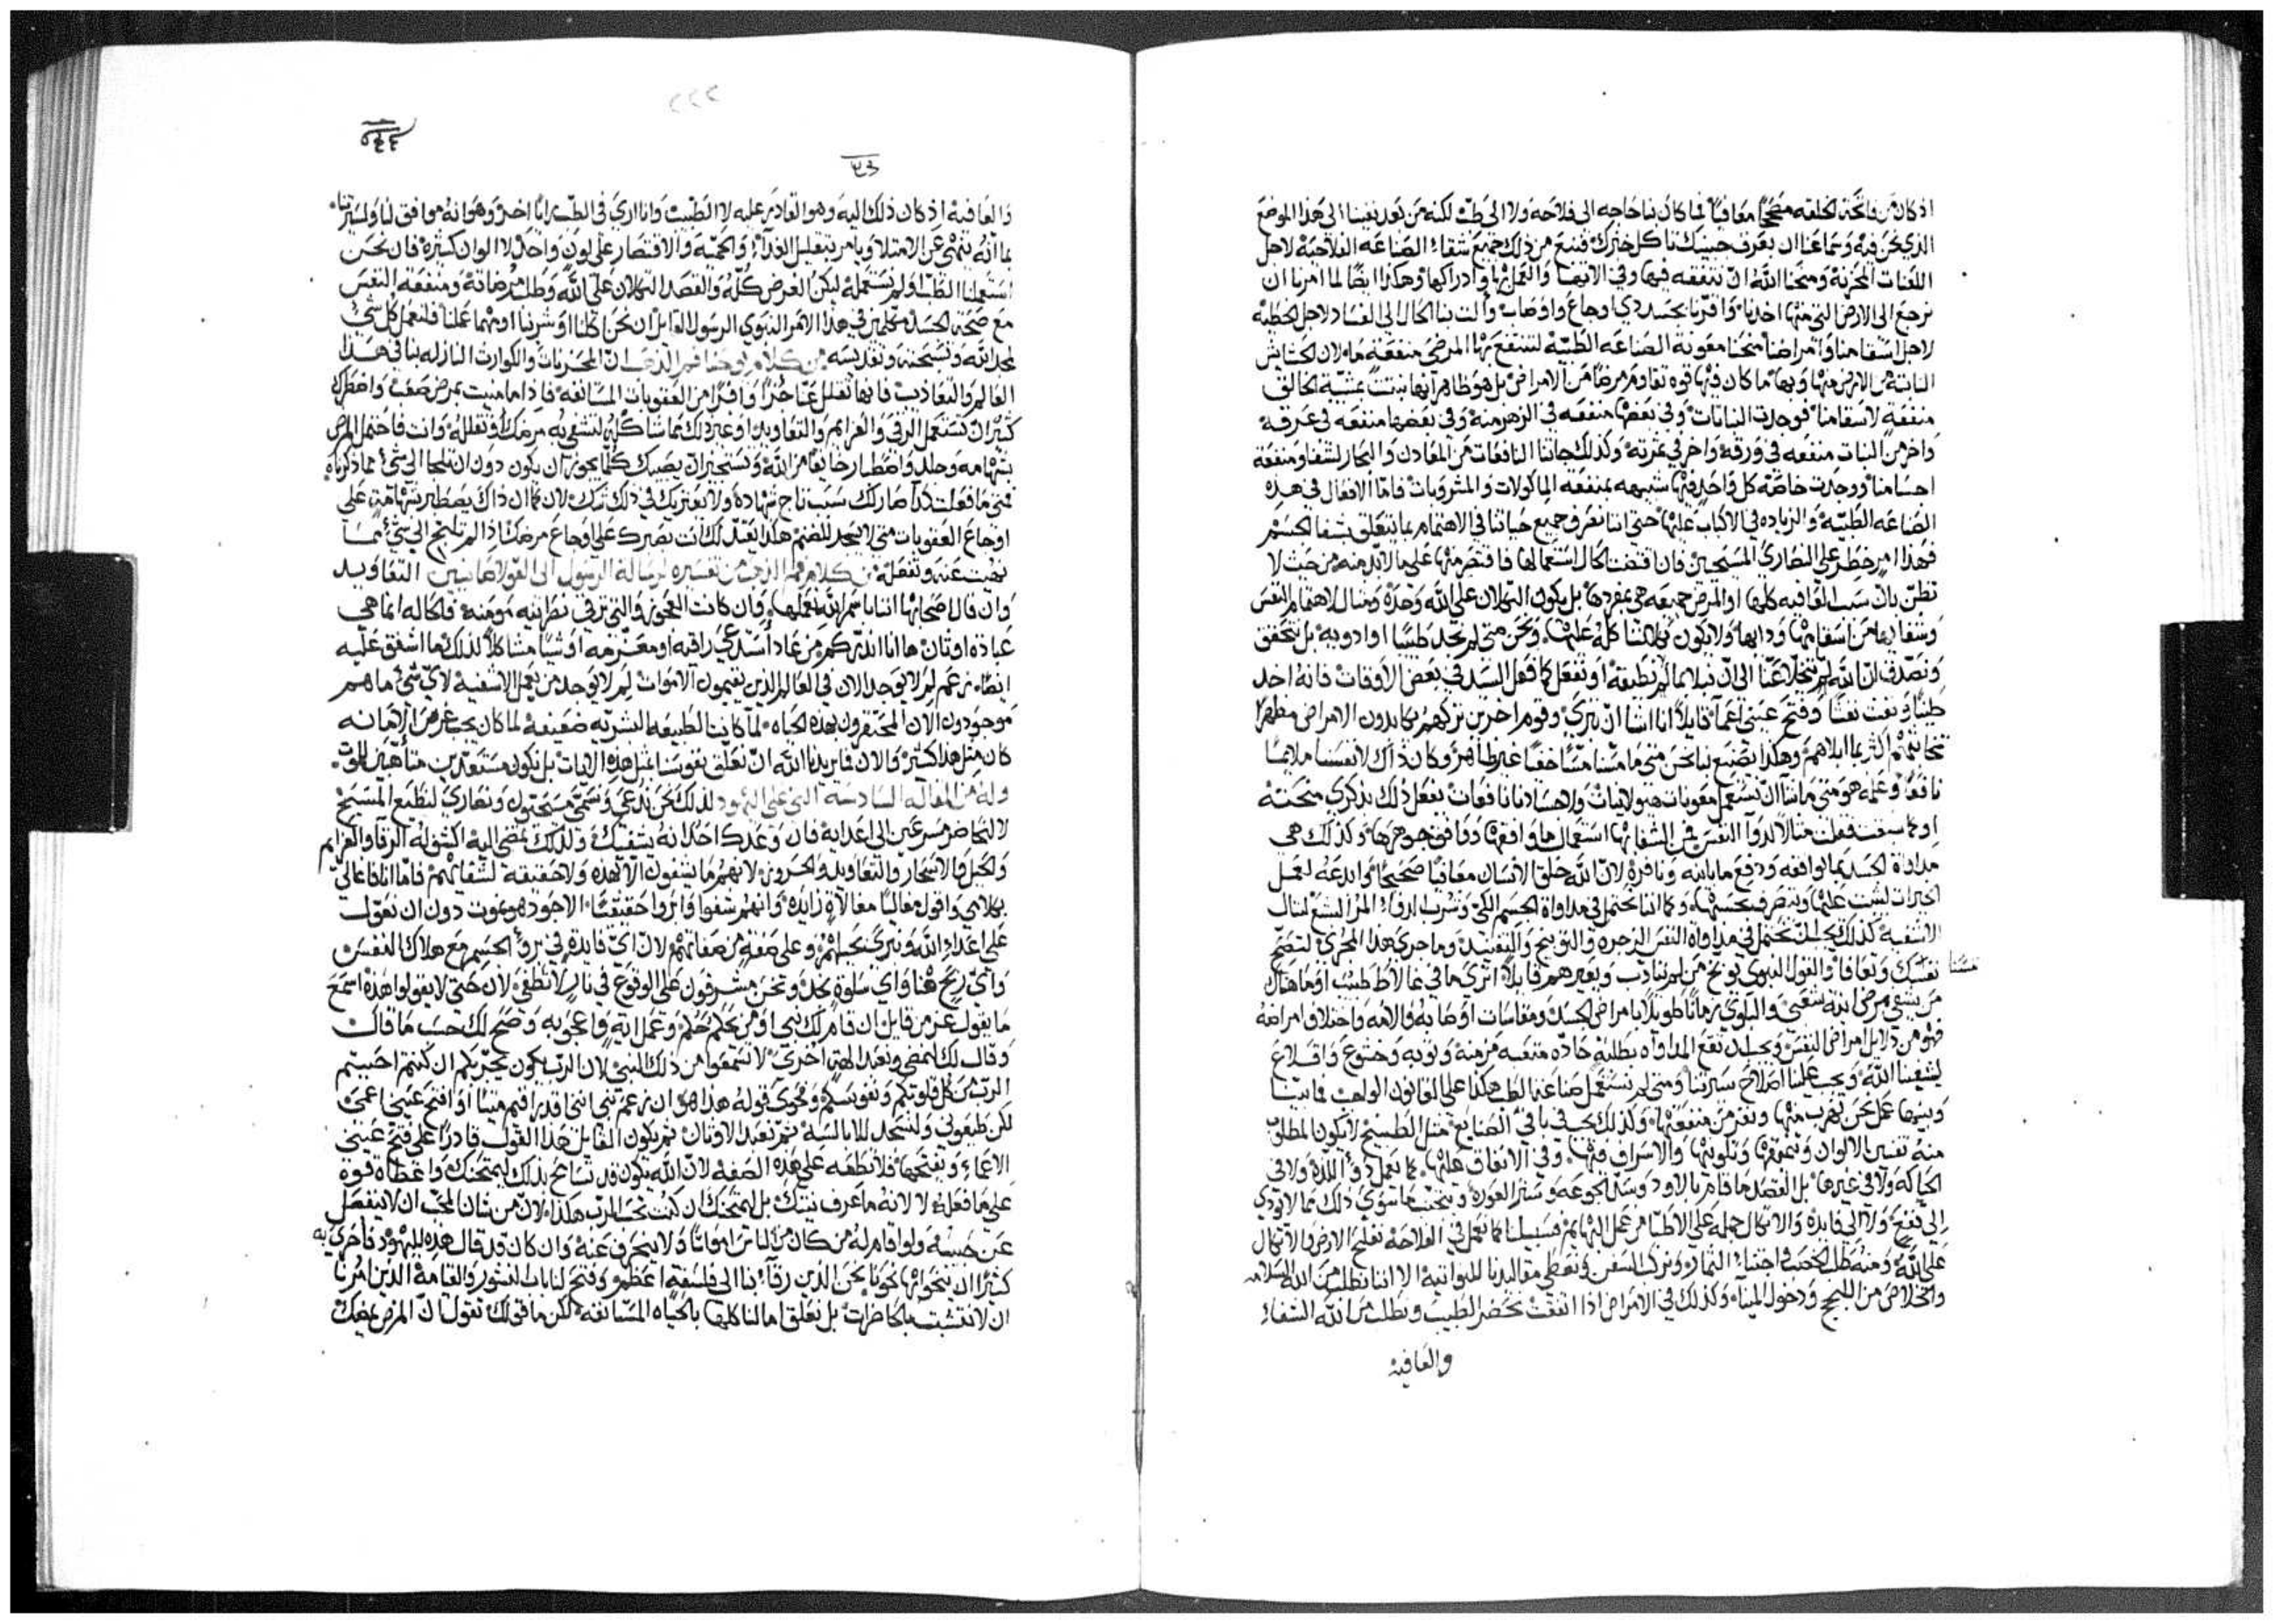 اذ كان من واتحة لخلقه مصححا معافيا فما كان بنا حاجه الى فلاحه ولا الى طب لكنه من بعد نفينا الى هذا الموضع
الذي نحن فيه وسماعنا ان بعرف جبينك تاكل خبزك فنتج من ذلك جميع شقاء الصناعه الفلاحية لاجل
اللعنات المحزنة ومنحنا الله ان نتفقه فيها وفي الايتها والعمل بها وادراكها وهكذا ايضا لما امرنا ان
نرجع الى الارض التي منها اخذنا واقترنا بجسد ذي اوجاع واوصاب وألت بنا الحال الى الفساد لاجل الخطية
لاجل اسقامنا وامراضنا منحنا معونة الصناعه الطبية لتنتفع بها المرضى منفعة ما لان الحشايش
النابتة من الارض منها وبها ما كان فيها قوه تقاوم مرضا من الامراض بل هو ظاهر انها نبتت بمشية الخالق
منفعة لاسقامنا فوجدت النباتات وفي بعضها منفعه في الزهر منه وفي بعضها منفعه في عرقه
واخر من النبات منفعه في ورقه واخر في ثمرته وكذلك جاتنا النافعات من المعادن والبحار لشفا ومنفعة
اجسامنا ووجدت خاصة كل واحد فيها شبيهه بمنفعة الماكولات والمشروبات فاما الافعال في هذه
الصناعه الطبية والزياده في الاكباب عليها حتى اننا نصرف جميع حياتنا في الاهتمام بما يتعلق بشفا الجسم
فهذا امر خطر على النصارى المسيحيين فان اقتضت الحال استعمالها فاقتصر منها على ما لا بد منه من حيث لا
تظن بان سبب العافيه كلها او المرض جميعه هي بمفردها بل يكون التكلان على الله وحده ومثال لاهتمام النفس
وشفايها من اسقامها ودايها ولا يكون تكلاننا كله عليها ونحن متى لم نجد طبيبا او ادويه بل نتحقق
ونصدق ان الله لم يتخلا عنا الى ان نبلا بما لم نطيقه او نفعل كما فعل السيد في بعض الاوقات فانه اخذ
طينا ونفث نفثا وفتح عيني اعما قايلا انا اشا ان تبرى وقوم اخرين تركهم يكابدون الامراض مظهرا
نجابتهم اكثر بما ابلاهم وهكذا يصنع بنا نحن متى ما مسنا مسا خفيا غير ظاهر وكان ذاك لانفسنا ملايما
نافعا وعمله هو متى ما شا ان نستعمل معونات هيولانيات ولاجسادنا نافعات نفعل ذلك بذكرى منحته
مداواة الجسد بما يوافقه ودفع ما ياينه وتنافره لان الله خلق الانسان معافيا صحيحا وابدعه لعمل
الاشفية كذلك يجب ان نحتمل في مداواة النفس الزجره والتوبيخ والتفنيد وما جرى هذا المجرى لتصح
نفسك وتعافا والقول النبوي يوبخ من لم يتادب ويعيرهم قايلا اترى ما في غالاط طبيب او ما هناك
نفسنا
من يشفي مرضى ابنة شعبي والبلوى زمانا طويلا بامراض الجسد ومقاسات اوصابه والامه واختلاف امراضه
فهو من دلايل امراض النفس ويجب ان تقع المداواه بطلبة حاده متعبه مزمنة وتوبه وخشوع واقلاع
ليشفينا الله ويجب علينا اصلاح سيرتنا ومتى لم نستعمل صناعة الطب هكذا على القانون الواجب فاننا
وبينما عمل نحن نهرب منها ونفر من منفعتها وكذلك يجب في باقي الصنايع مثل الطبيخ لا يكون المطلوب
منه تغيير الالوان وتنميقها وتلوينها والاسراف فيها وفي الانفاق عليها كما يعمل ذو اللذة ولا في
الحياكه ولا في غيرها بل القصد ما قام بالاود وسد الجوعه وستر العوره ونتجنب ما سوى ذلك مما لا يودي
الى نفع ولا الى فايده والاتكال جمله على الاطبا من عمل البهايم فسبيلنا كما نعمل في الفلاحة نفلح الارض والاتكال
على الله ومنه نطلب الخصب في اجتناء الثمار ونركب السفن ونعطي مقاليدنا للنواتيه الا اننا نطلب من الله السلامه
والخلاص من اللجج ودخول الميناء وكذلك في الامراض اذا اتفقت نحضر الطبيب ونطلب من الله الشفاء
والعافية
٢٢٢
والعافية اذ كان ذلك اليه وهو القادر عليه لا الطبيب وانا ارى في الطب رايا اخر وهو انه موافق لنا ولسيرتنا
بما انه ينهى عن الامتلا ويامر بتقليل الغذاء والحميه والاقتصار على لون واحد لا الوان كثيره فان نحن
استعملنا الطب او لم نستعمله ليكن الغرض كله والقصد التكلان على الله وطلب مرضاته ومنفعة النفس
مع صحة الجسد مكملين في هذا الامر النبوي الرسول القايل ان نحن اكلنا او شربنا او مهما عملنا فلنعمل كل شي
لمجد الله وتسبحته وتقديسه من كلام يوحنا فم الذهب ان المحزنات والكوارث النازله بنا في هذا
العالم والتعاذيب فانها تقلل عنا جزا وافرا من العقوبات السالفه فاذا ما منيت بمرض صعب واضطرك
كثير ان تستعمل الرقى والعزايم والتعاويذ او غير ذلك مما شاكله لتشفي به مرضك او تقلله وانت فاحتمل المرض
بشهامه وجلد واصطبار خايفا من الله وتستخير ان يصيبك كلما يجوز ان يكون دون ان تلجا الى شي مما ذكرناه
فمتى ما فعلت هذا صار لك سبب تاج شهادة ولا يعتريك في ذلك شك لان كما ان ذاك يصطبر بشهامة على
اوجاع العقوبات متى لا يسجد للصنم هكذا يعتد لك انت بصبرك على اوجاع مرضك اذا لم تلتجي الى شي مما
نهيت عنه وتفعله من كلام فم الذهب من تفسيره لرسالة الرسول الى القولاصايين التعاويذ
وان قال اصحابها اننا باسم الله نعملها وان كانت العجوز والتي ترقي نصرانيه مومنة فلكاله انما هي
عبادة اوثان ها انا انذركم من عاد استدعي راقيه او معزمه او شيا مشاكلا لذلك ما اشفق عليه
ايضا نزعم لم لا يوجد الان في العالم الذين يقيمون الاموات لم لا يوجد من يعمل الاشفية لاي شي ما هم
موجودون الان المحتقرون بهذه الحياه لما كانت الطبيعه البشريه ضعيفة لما كان يجب غرس الامانه
كان مثل هذا كثير والان فما يريدنا الله ان نعلق نفوسنا بمثل هذه الايات بل نكون مستعدين متأهبين للموت
وله من المقاله السادسة التي على اليهود لذلك نحن ندعى ونسمى مسيحيون ونصارى لنطيع المسيح
لا لنحاضر مسرعين الى اعدايه فان وعدك احد انه يشفيك ولذلك تمضي اليه اكشف له الرقا والعزايم
والحيل والاسحار والتعاويذ والحروز لانهم ما يشفون الا بهذه ولا حقيقة لشفايهم فاما انا فاغالي
بكلامي واقول مغاليا مغالاة زايده وانهم شفوا وابروا حقيقتا الاجود هو نموت دون ان نعول
على اعداء الله ونبرى بحيلهم وعلى صفة من صفاتهم لان اي فايدة في برؤ الجسم مع هلاك النفس
واي ربح هنا واي سلوة نجد ونحن مشرفون على الوقوع في نار لا تطفى لان حتى لا يقولوا هذه اسمع
ما يقول عز من قايل ان قام لك نبي او من يحلم حلم وعمل اية واعجوبه وصح لك حسب ما قالك
وقال لك نمضي ونعبد الهة اخرى لا تسمعوا من ذلك النبي لان الرب يكون يجربكم ان كنتم احببتم
الرب من كل قلوبكم ونفوسكم ونحوى قوله هذا هو ان زعم نبي انني اقدر اقيم ميتا او افتح عيني اعمى
لكن طيعوني ولنسجد للابالسة ثم نعبد الاوثان ثم يكون القايل هذا القول قادرا على فتح عيني
الاعماء ويفتحها فلا نطعه على هذه الصفه لان الله يكون قد تسامح بذلك ليمتحنك واعطاه قوة
على ما فعله لا لانه ما عرف نيتك بل ليمتحنك ان كنت تحب الرب هكذا لان من شان المحب ان لا ينفصل
عن حبيبه ولو اقام له من كان من الناس امواتا ولا ينحرف عنه وان كان قد قال هذه لليهود فاحرى به
كثيرا ان ينحو بها نحونا نحن الذين رقا بنا الى فلسفة اعظم وفتح لنا باب النشور والقيامة الذين امرنا
ان لا نتشبث بالحاضرات بل نعلق امالنا كلها بالحياه المستانفه لكن ما قولك نقول ان المرض يمعك